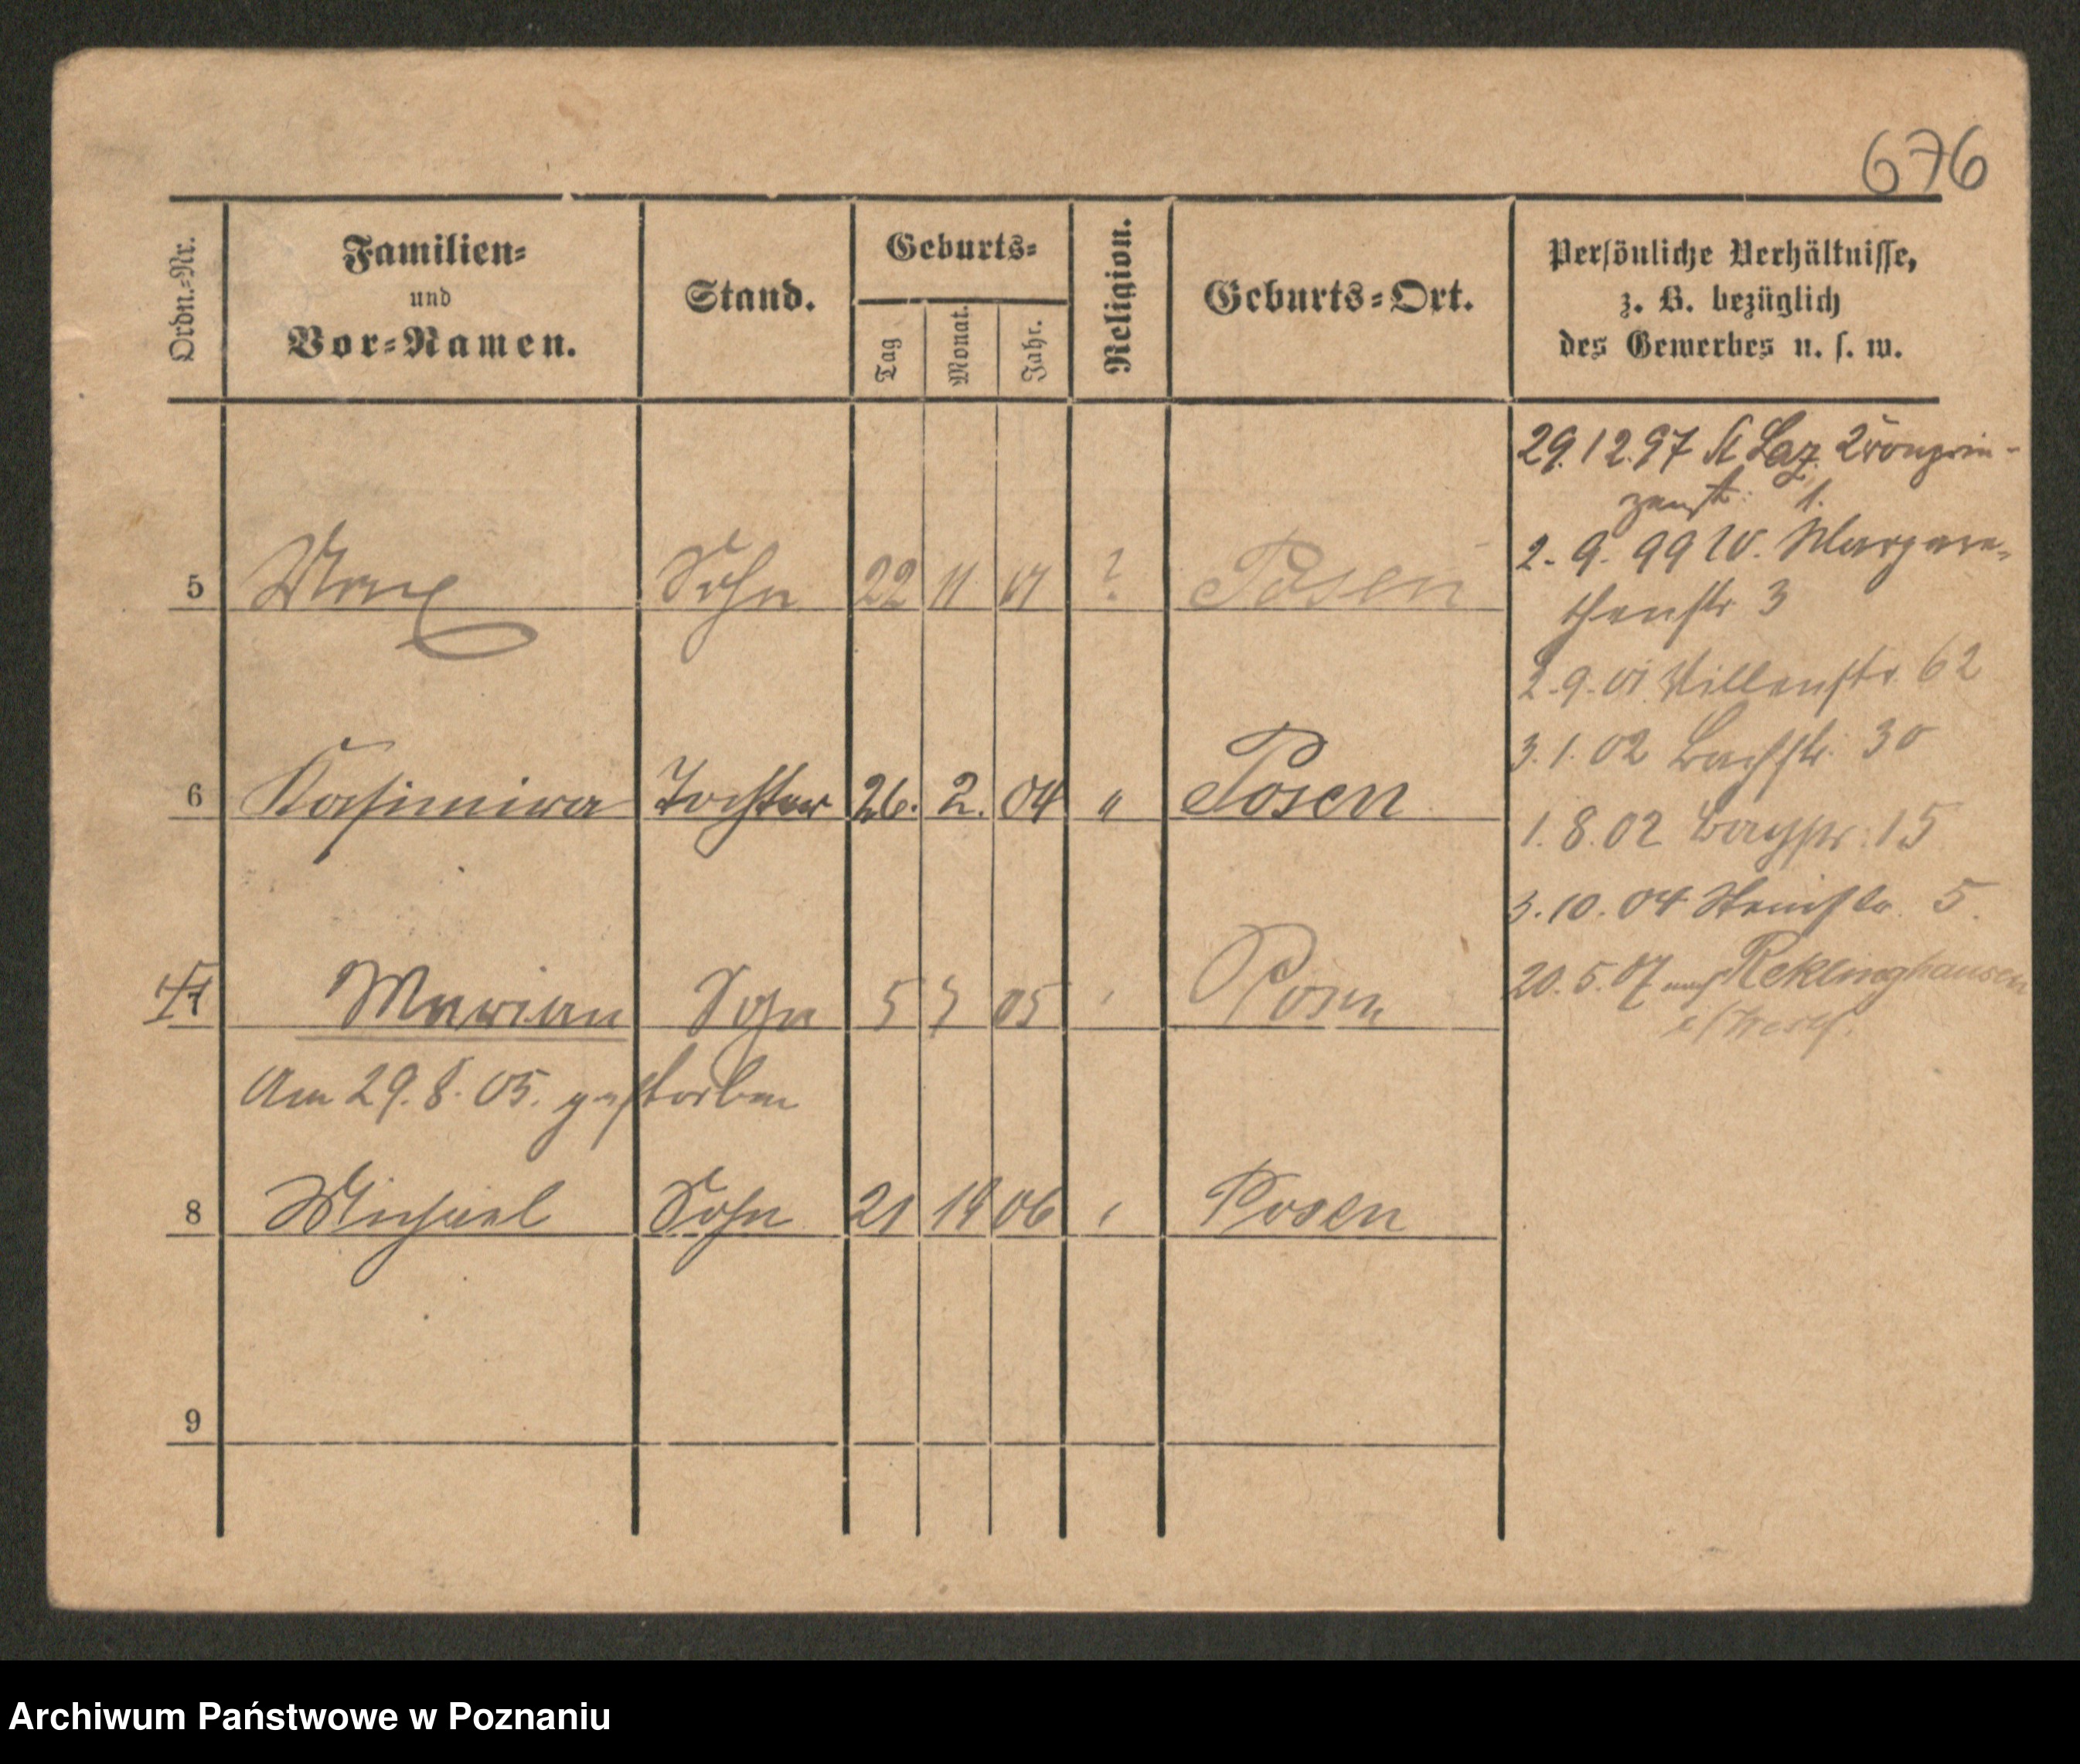 676
Ordn.-Nr.
Familien-
und
Vor-Namen.
Stand.
Geburts-
Tag
Monat.
Jahr.
Religion.
Geburts-Ort.
Persönliche Verhältnisse,
z. B. bezüglich
des Gewerbes u. s. w.
5 Max Sohn 22 11 01 ? Posen
6 Kasimira Tochter 26. 2. 04 " Posen
7 Marian Sohn 5 05 Posen
Am 29.8.05. gestorben
8 Michael Sohn 21 06 Posen
9
29.12.97 St Laz. Kronprin-
zenstr. 1.
2.9.99 W. Margare-
thenstr 3
2.9.01 Villenstr. 62
3.1.02 Bachstr. 30
1.8.02 15
3.10.04 Steinstr. 5.
20.5.07 nach Reklinghausen
i/Westf.
Archiwum Państwowe w Poznaniu